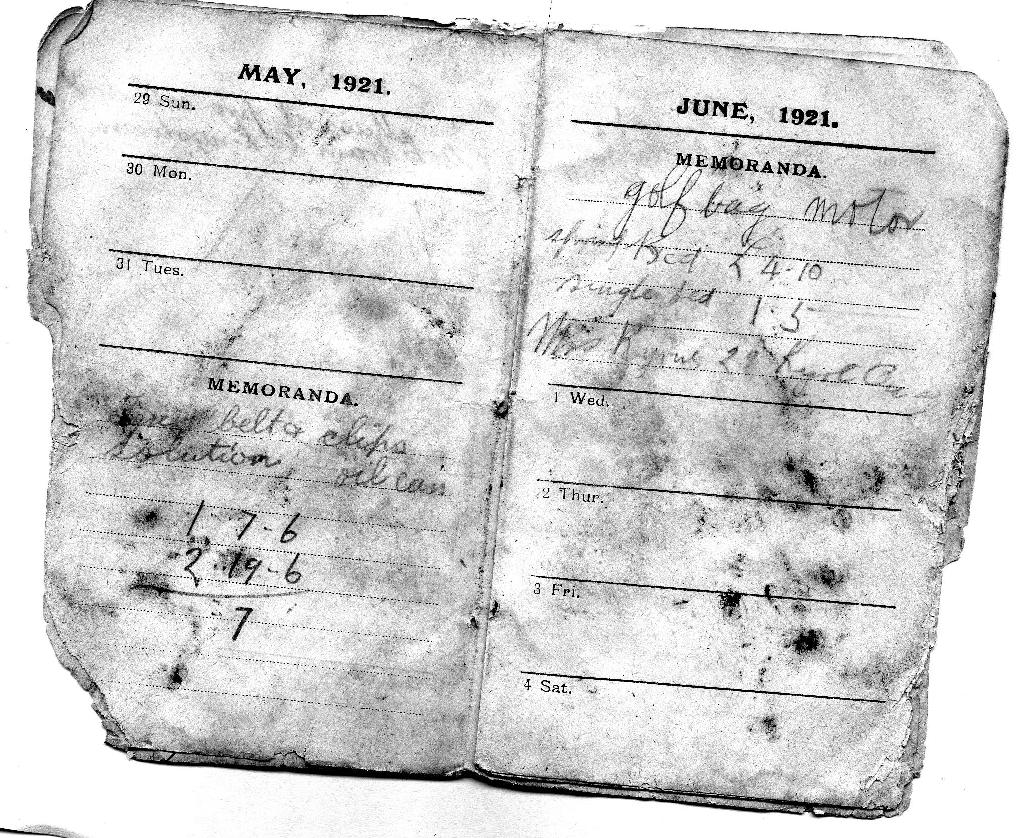 MAY, 1921.
29 Sun.
30 Mon.
31 Tues.
MEMORANDA.
Belt & clips
solution, oil can
1 7-6
2 19-6
7
JUNE, 1921.
MEMORANDA.
golf bag motor
Bed £4-10
single bed 1-5
Miss
1 Wed.
2 Thur.
3 Fri.
4 Sat.